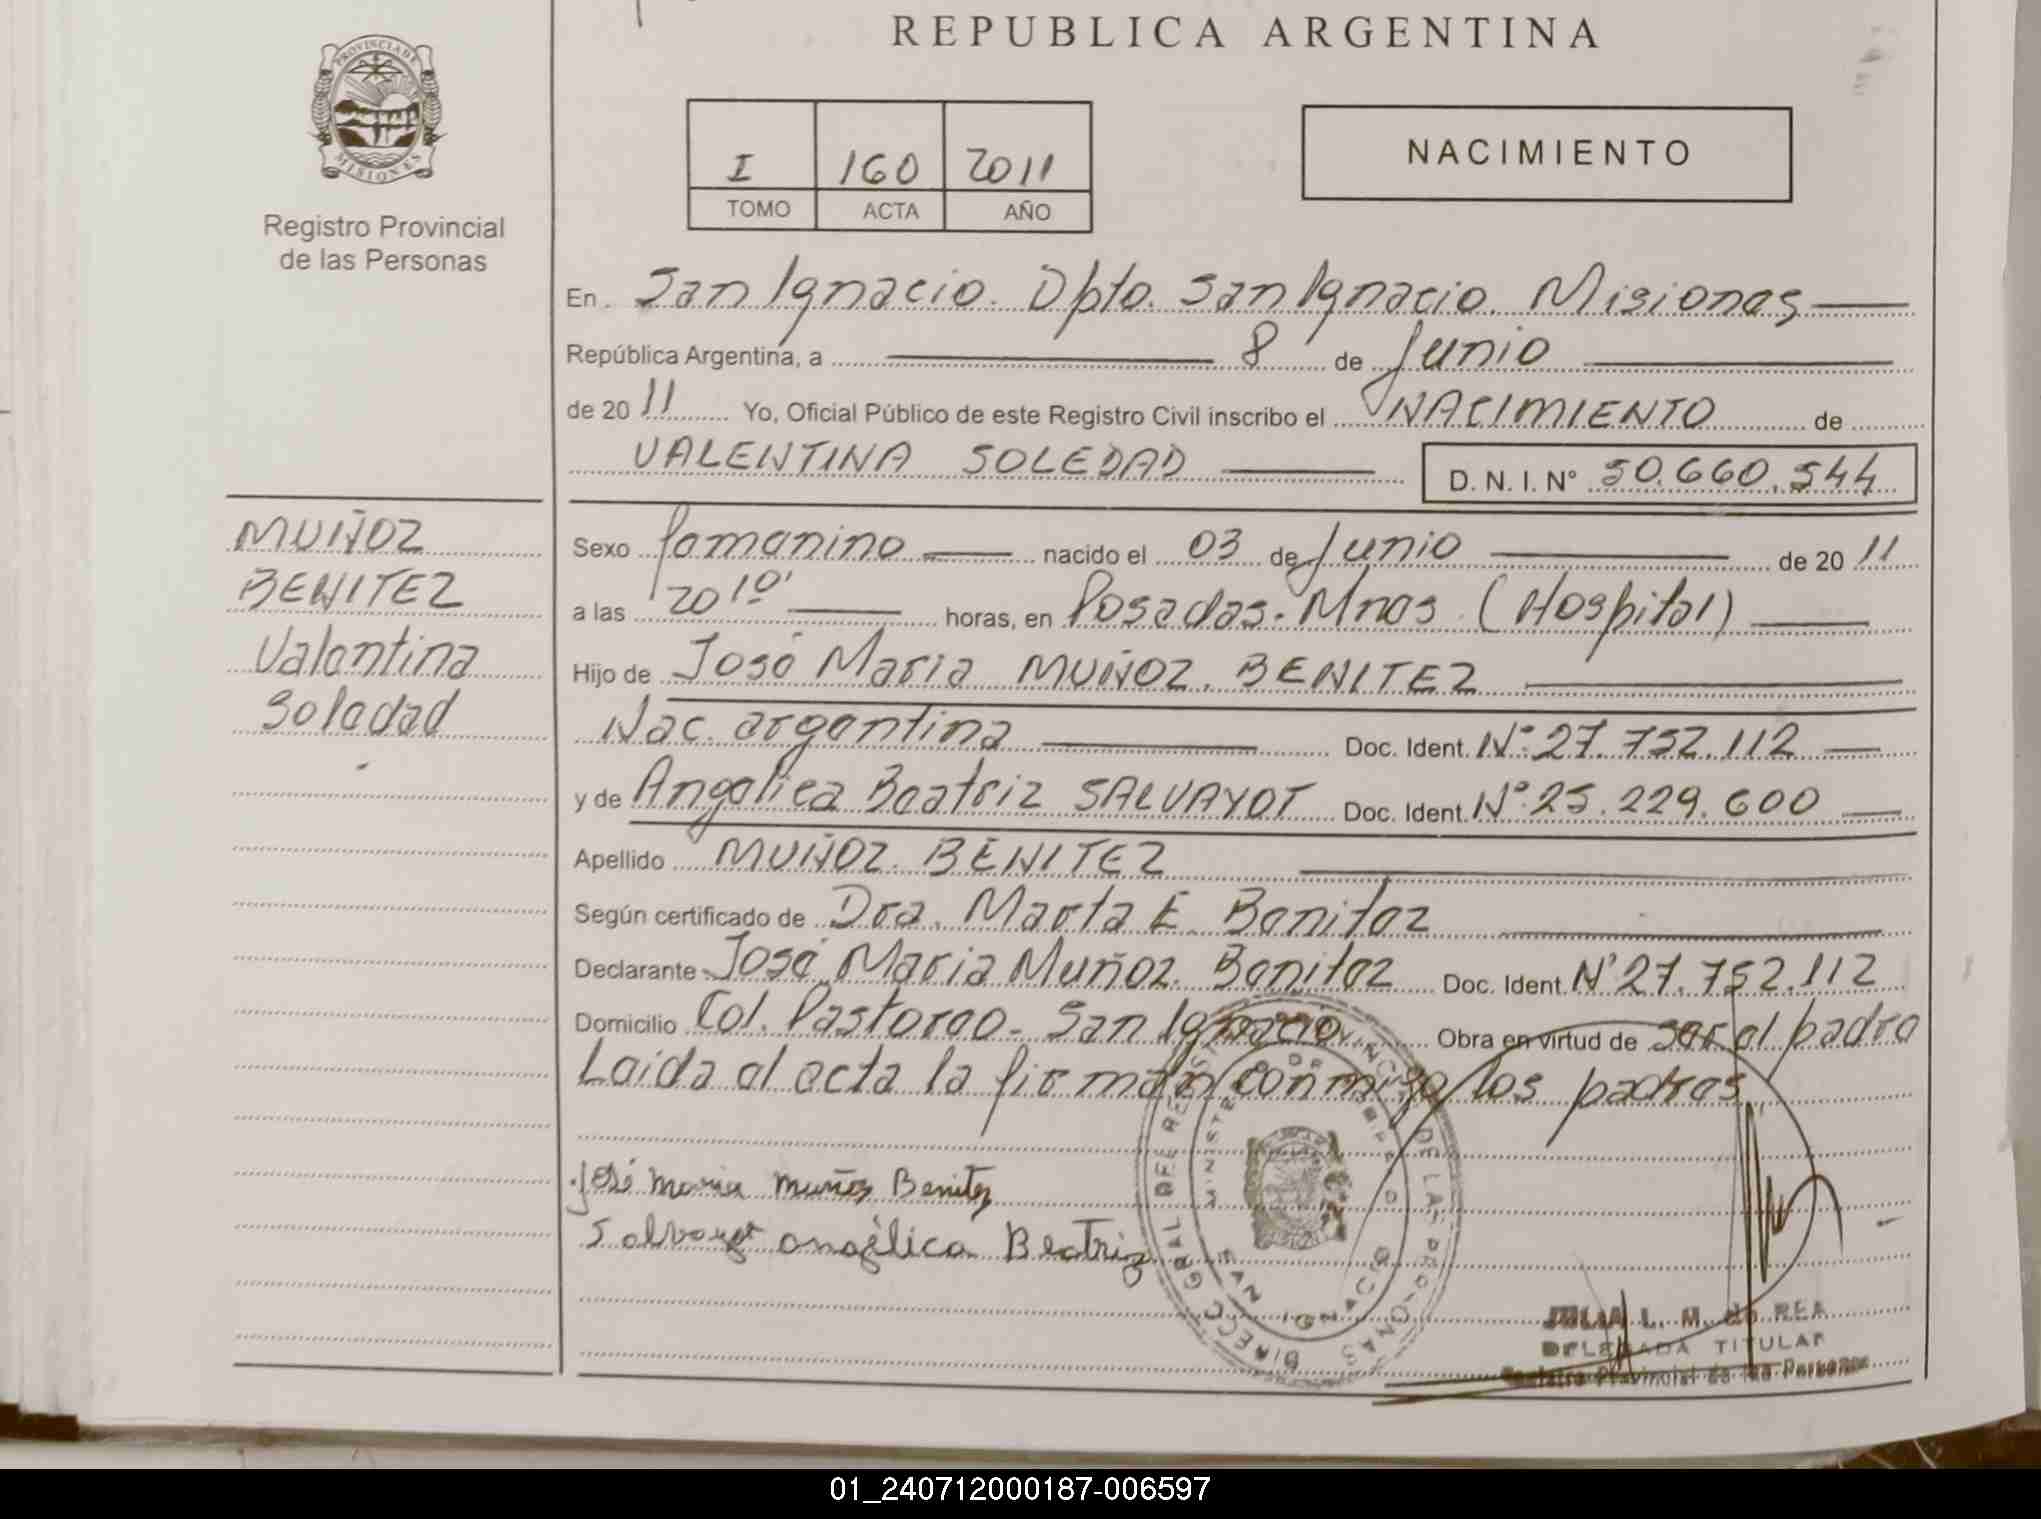 REPUBLICA ARGENTINA
PROVINCIA DE
MISIONES
Registro Provincial
de las Personas
I 160 2011
TOMO ACTA AÑO
NACIMIENTO
En San Ignacio. Dpto. San Ignacio. Misiones
República Argentina, a 8 de Junio
de 20 11 Yo, Oficial Público de este Registro Civil inscribo el NACIMIENTO de
VALENTINA SOLEDAD D. N. I. N° 50.660.544
MUÑOZ
BENITEZ
Valentina
Soledad
Sexo femenino nacido el 03 de Junio de 20 11
a las 20 10' horas, en Posadas. Mnes. (Hospital)
Hijo de José Maria MUÑOZ. BENITEZ
Nac. argentina Doc. Ident. N° 27.752.112
y de Angelica Beatriz SALVAYOT Doc. Ident. N° 25.229.600
Apellido MUÑOZ. BENITEZ
Según certificado de Dra. Marta E. Benitez
Declarante José Maria Muñoz. Benitez Doc. Ident. N° 27.752.112
Domicilio Col. Pastoreo - San Ignacio. Obra en virtud de ser el padre
Leida el acta la firman conmigo los padres
José Maria Muñoz Benitez
Salvayot Angélica Beatriz
SAN IGNACIO
JULIA L. M. de REA
DELEGADA TITULAR
Registro Provincial de las Personas
01_240712000187-006597